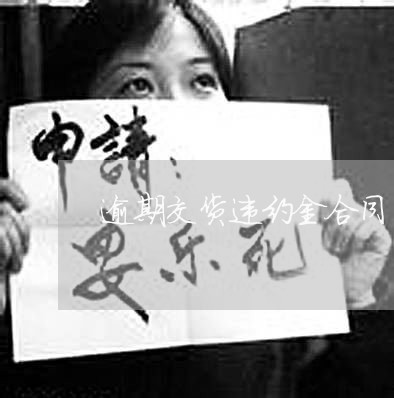 申請：
逾期交货违约金合同
安乐死